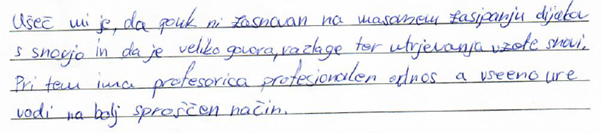 Všeč mi je, da pouk ni zasnovan na masovnem zasipanju dijakov
s snovjo in da je veliko govora, razlage ter utrjevanja vzete snovi.
Pri tem ima profesorica profesionalen odnos a vseeno ure
vodi na bolj sproščen način.